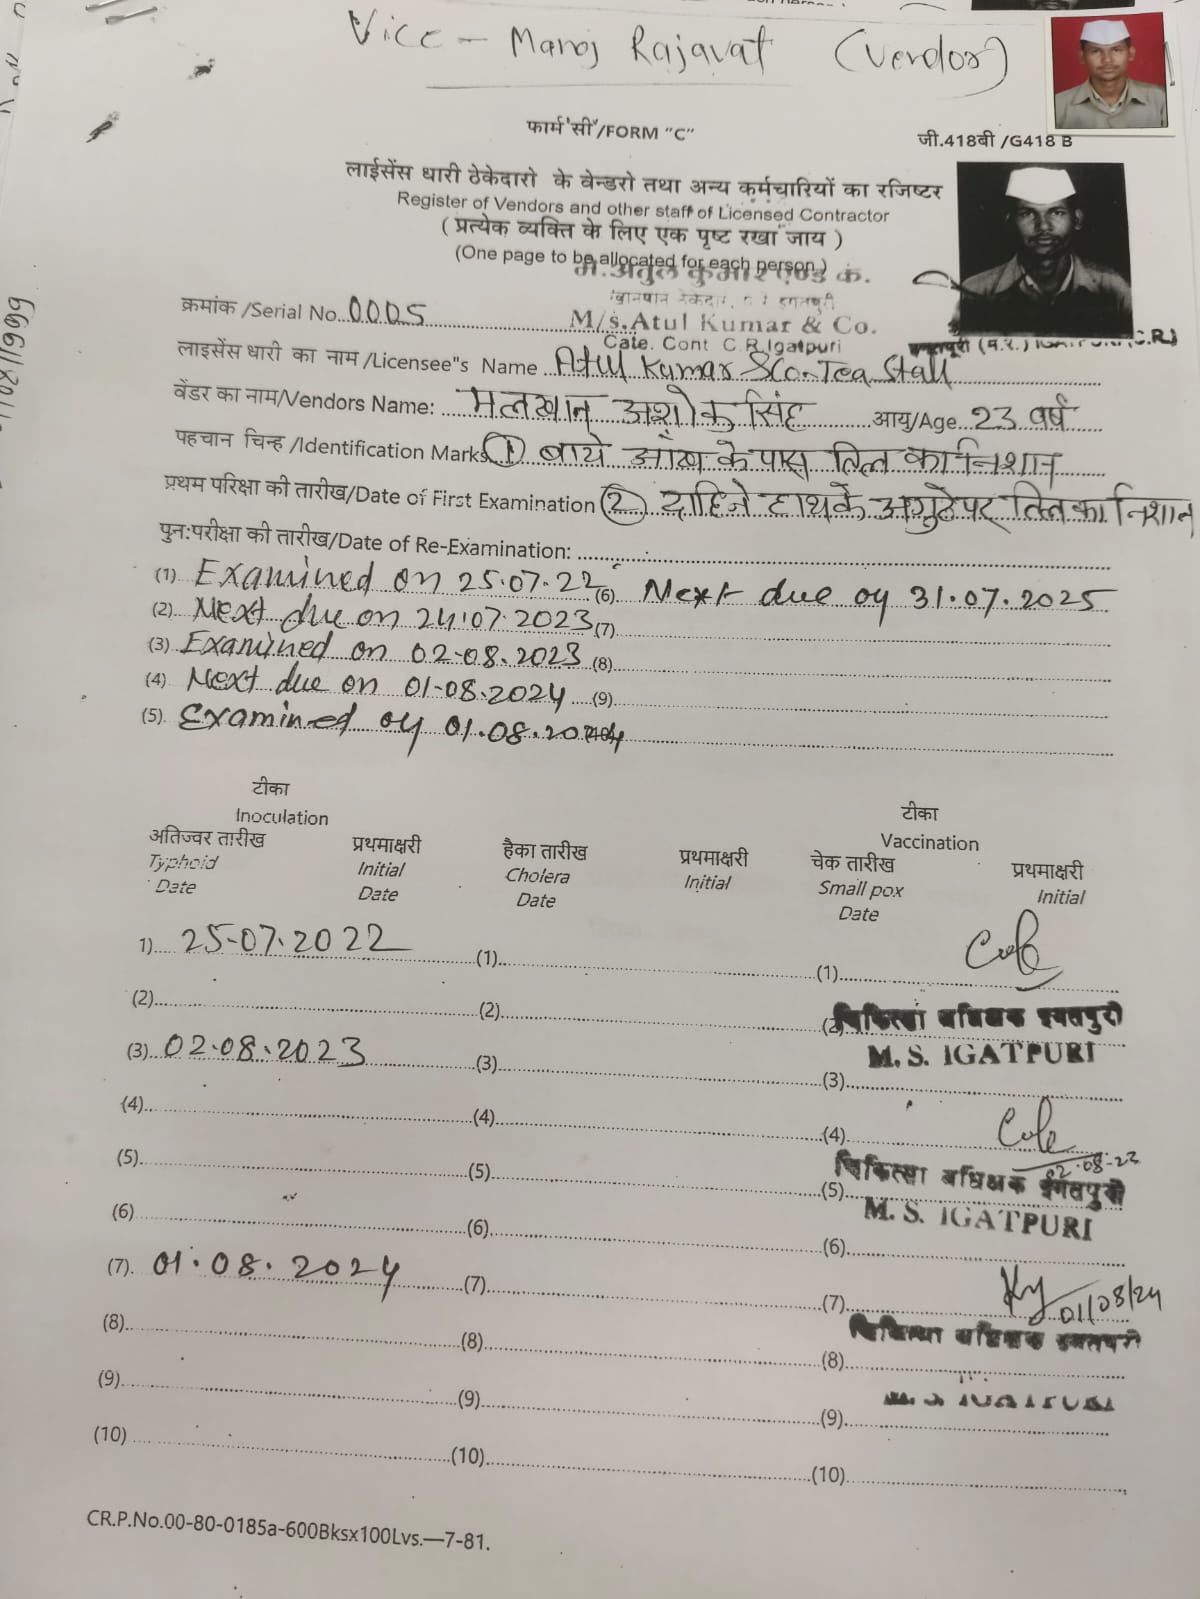 Vice - Manoj Rajavat (Vendor)
फार्म 'सी'/FORM "C"
जी.418बी /G418 B
लाईसेंस धारी ठेकेदारो के वेन्डरो तथा अन्य कर्मचारियों का रजिष्टर
Register of Vendors and other staff of Licensed Contractor
( प्रत्येक व्यक्ति के लिए एक पृष्ट रखा जाय )
(One page to be allocated for each person.)
मे.अतुल कुमार एण्ड कं.
M/s.Atul Kumar & Co.
Cate. Cont C.R.Igatpuri
क्रमांक /Serial No. 0005
लाइसेंस धारी का नाम /Licensee"s Name Atul Kumar & Co. Tea Stall
वेंडर का नाम/Vendors Name: मलखान अशोक सिंह आयु/Age 23 वर्ष
पहचान चिन्ह /Identification Marks (1) बाये आँख के पास तिल का निशान
प्रथम परिक्षा की तारीख/Date of First Examination (2) दाहिने हाथके अगुठेपर तिलका निशान
पुन:परीक्षा की तारीख/Date of Re-Examination:
(1) Examined on 25.07.22 (6) Next due oy 31.07.2025
(2) Next due on 24.07.2023 (7)
(3) Examined on 02-08.2023 (8)
(4) Next due on 01-08.2024 (9)
(5) Examined oy 01.08.2024
टीका
Inoculation
टीका
Vaccination
अतिज्वर तारीख प्रथमाक्षरी हैका तारीख प्रथमाक्षरी चेक तारीख प्रथमाक्षरी
Typhoid Initial Cholera Initial Small pox Initial
Date Date Date Date
1) 25-07.2022 (1) (1)
(2) (2) (2) चिकित्सा अधिक्षक इगतपुरी
M. S. IGATPURI
(3) 02.08.2023 (3) (3)
(4) (4) (4)
02-08-23
(5) (5) (5) चिकित्सा अधिक्षक इगतपुरी
M. S. IGATPURI
(6) (6) (6)
(7) 01.08.2024 (7) (7) 01/08/24
चिकित्सा अधिक्षक इगतपुरी
(8) (8) (8)
M. S IGATPURI
(9) (9) (9)
(10) (10) (10)
CR.P.No.00-80-0185a-600Bksx100Lvs.—7-81.